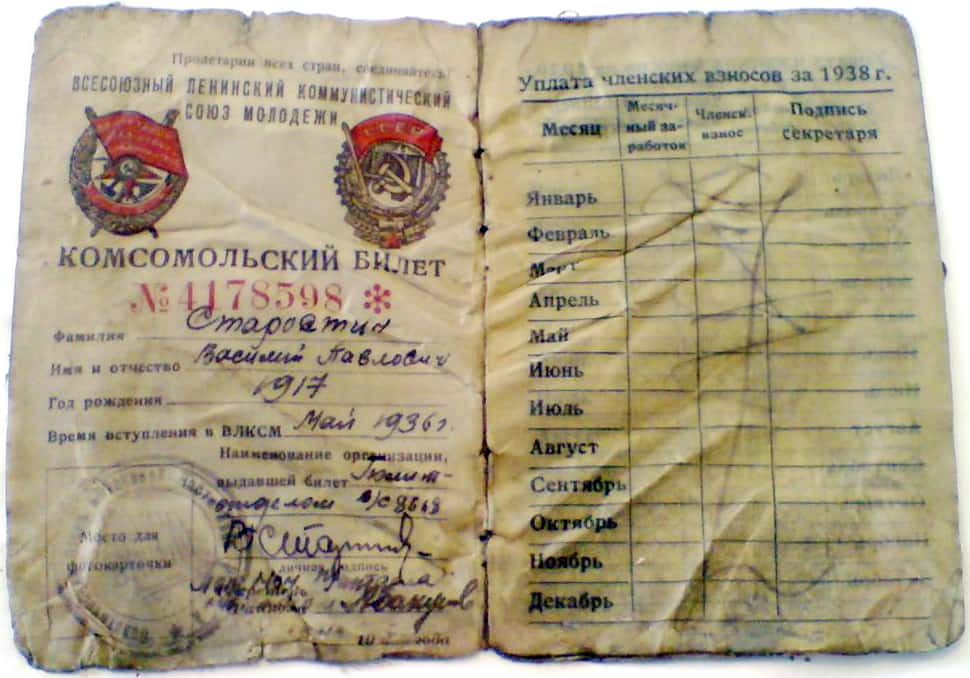 Пролетарии всех стран, соединяйтесь!
ВСЕСОЮЗНЫЙ ЛЕНИНСКИЙ КОММУНИСТИЧЕСКИЙ
СОЮЗ МОЛОДЕЖИ
СССР
КОМСОМОЛЬСКИЙ БИЛЕТ
№ 4178598 *
Фамилия Старостин
Имя и отчество Василий Павлович
Год рождения 1917
Время вступления в ВЛКСМ Май 1936 г.
Наименование организации,
выдавшей билет Полит-
отделом в/с 8648
Место для
фотокарточки
личная подпись
Уплата членских взносов за 1938 г.
Месяц
Месяч-
ный за-
работок
Членск.
взнос
Подпись
секретаря
Январь
Февраль
Март
Апрель
Май
Июнь
Июль
Август
Сентябрь
Октябрь
Ноябрь
Декабрь